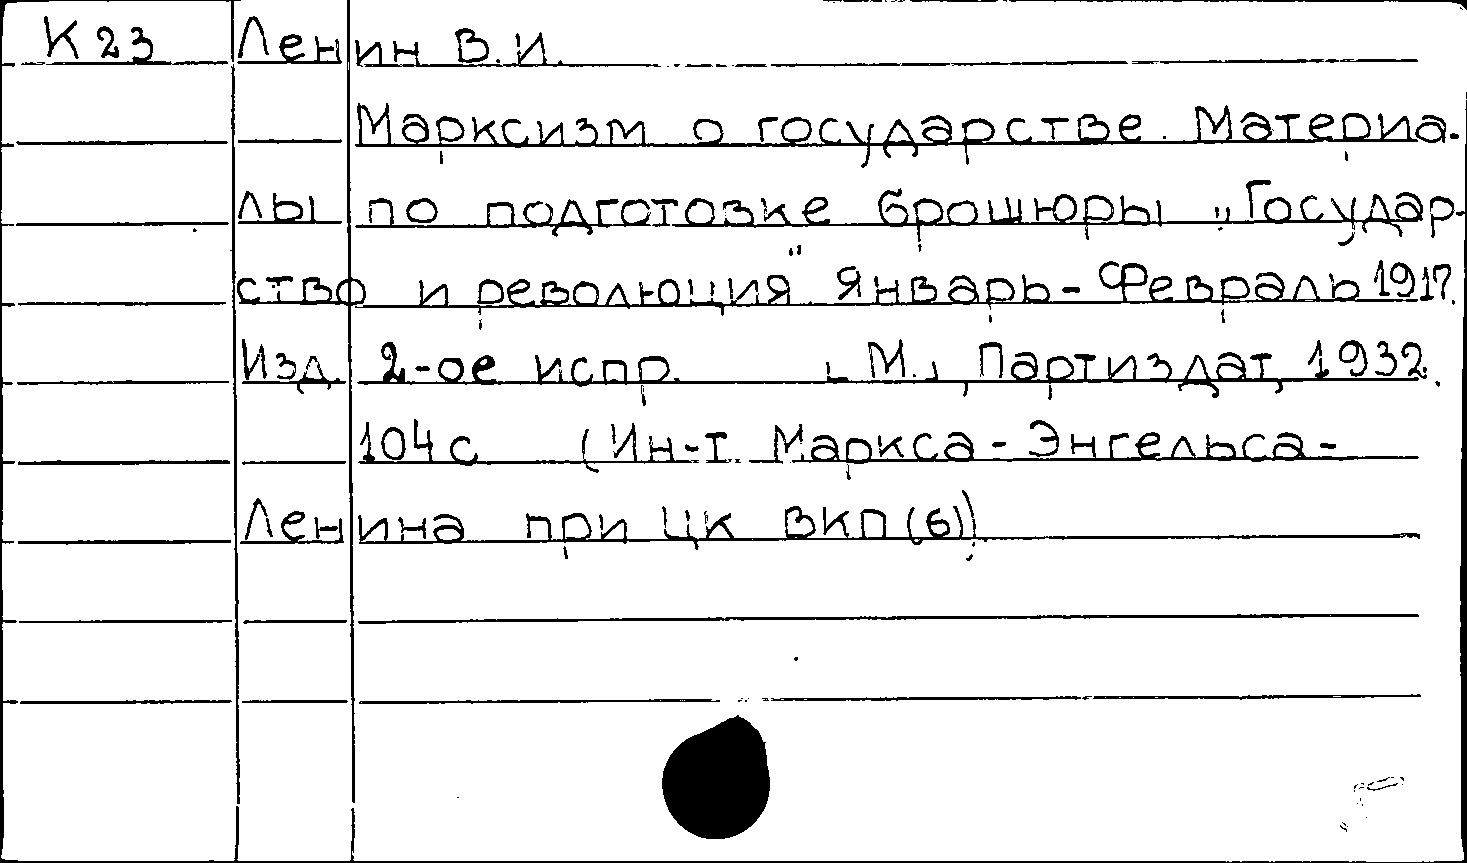 К 23 Ленин В.И.
Марксизм о государстве. Материа-
лы по подготовке брошюры „Государ-
ство и революция" Январь-Февраль 1917.
Изд. 2-ое испр. [М.], Партиздат, 1932.
104 с (Ин-т. Маркса-Энгельса-
Ленина при ЦК ВКП(б))